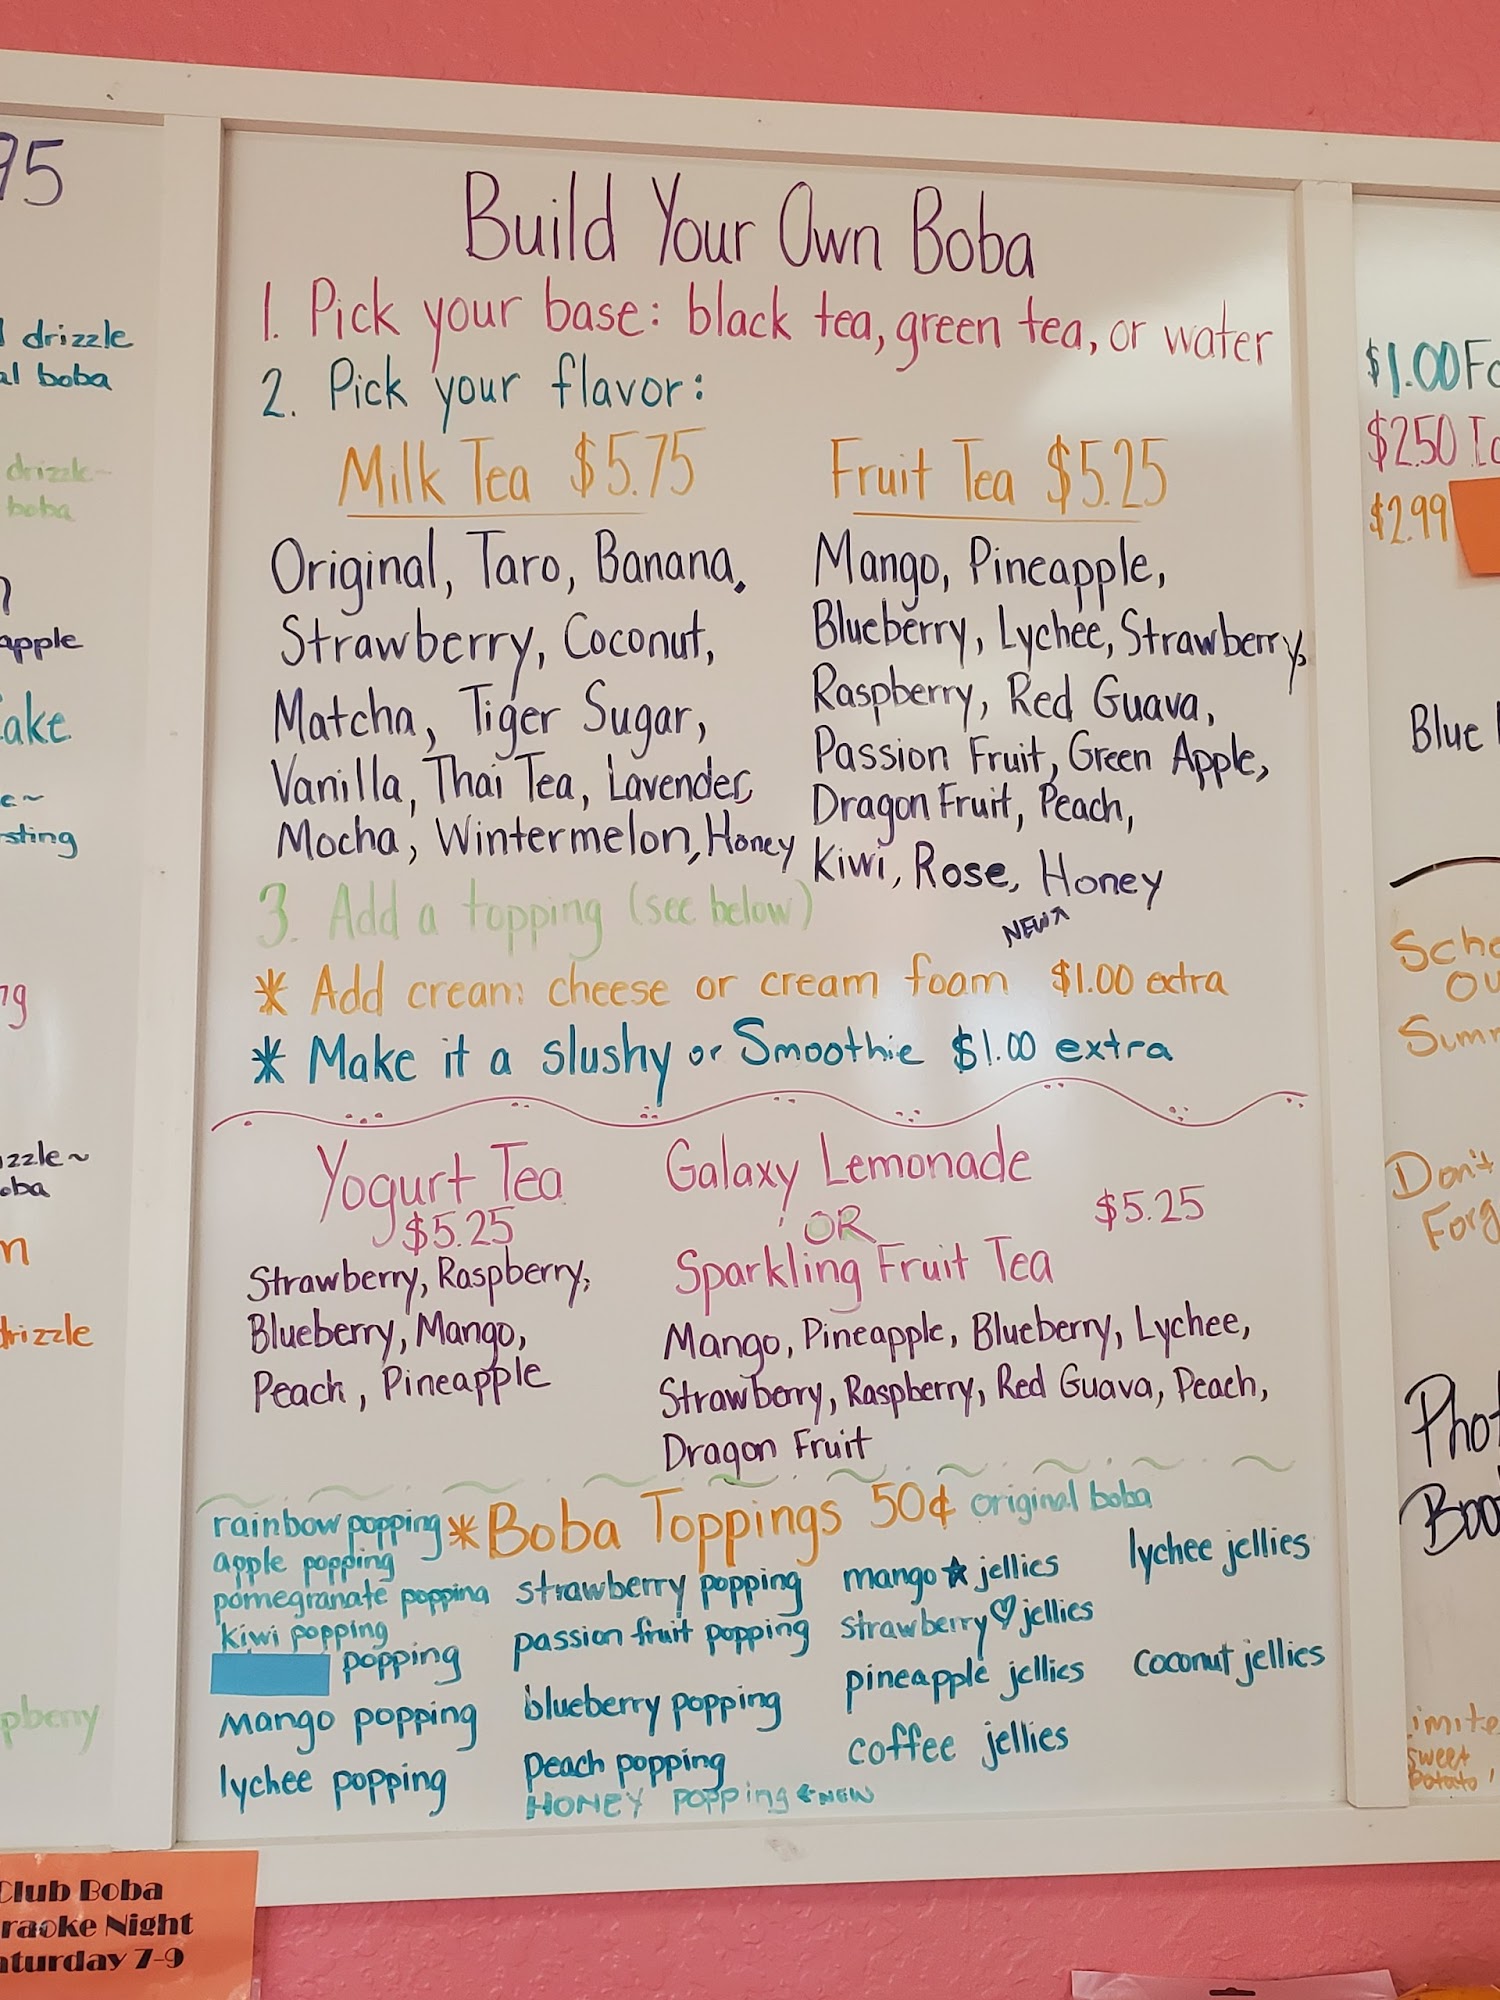 95
drizzle
boba
drizzle~
boba
apple
~
drizzle
Build Your Own Boba
1. Pick your base: black tea, green tea, or water
2. Pick your flavor:
Milk Tea $5.75
Original, Taro, Banana,
Strawberry, Coconut,
Matcha, Tiger Sugar,
Vanilla, Thai Tea, Lavender,
Mocha, Wintermelon, Honey
Fruit Tea $5.25
Mango, Pineapple,
Blueberry, Lychee, Strawberry,
Raspberry, Red Guava,
Passion Fruit, Green Apple,
Dragon Fruit, Peach,
Kiwi, Rose, Honey
NEW↗
3. Add a topping (see below)
* Add cream cheese or cream foam $1.00 extra
* Make it a slushy or Smoothie $1.00 extra
Yogurt Tea
$5.25
Strawberry, Raspberry,
Blueberry, Mango,
Peach, Pineapple
Galaxy Lemonade
OR
$5.25
Sparkling Fruit Tea
Mango, Pineapple, Blueberry, Lychee,
Strawberry, Raspberry, Red Guava, Peach,
Dragon Fruit
*Boba Toppings 50¢
rainbow popping
apple popping
pomegranate popping
kiwi popping
popping
mango popping
lychee popping
strawberry popping
passion fruit popping
blueberry popping
peach popping
HONEY popping ← NEW
original boba
mango ★ jellies
strawberry ♡ jellies
pineapple jellies
coffee jellies
lychee jellies
coconut jellies
$1.00
$2.50
$2.99
Blue
Don't
Sweet
Potato
Club Boba
Karaoke Night
Saturday 7-9